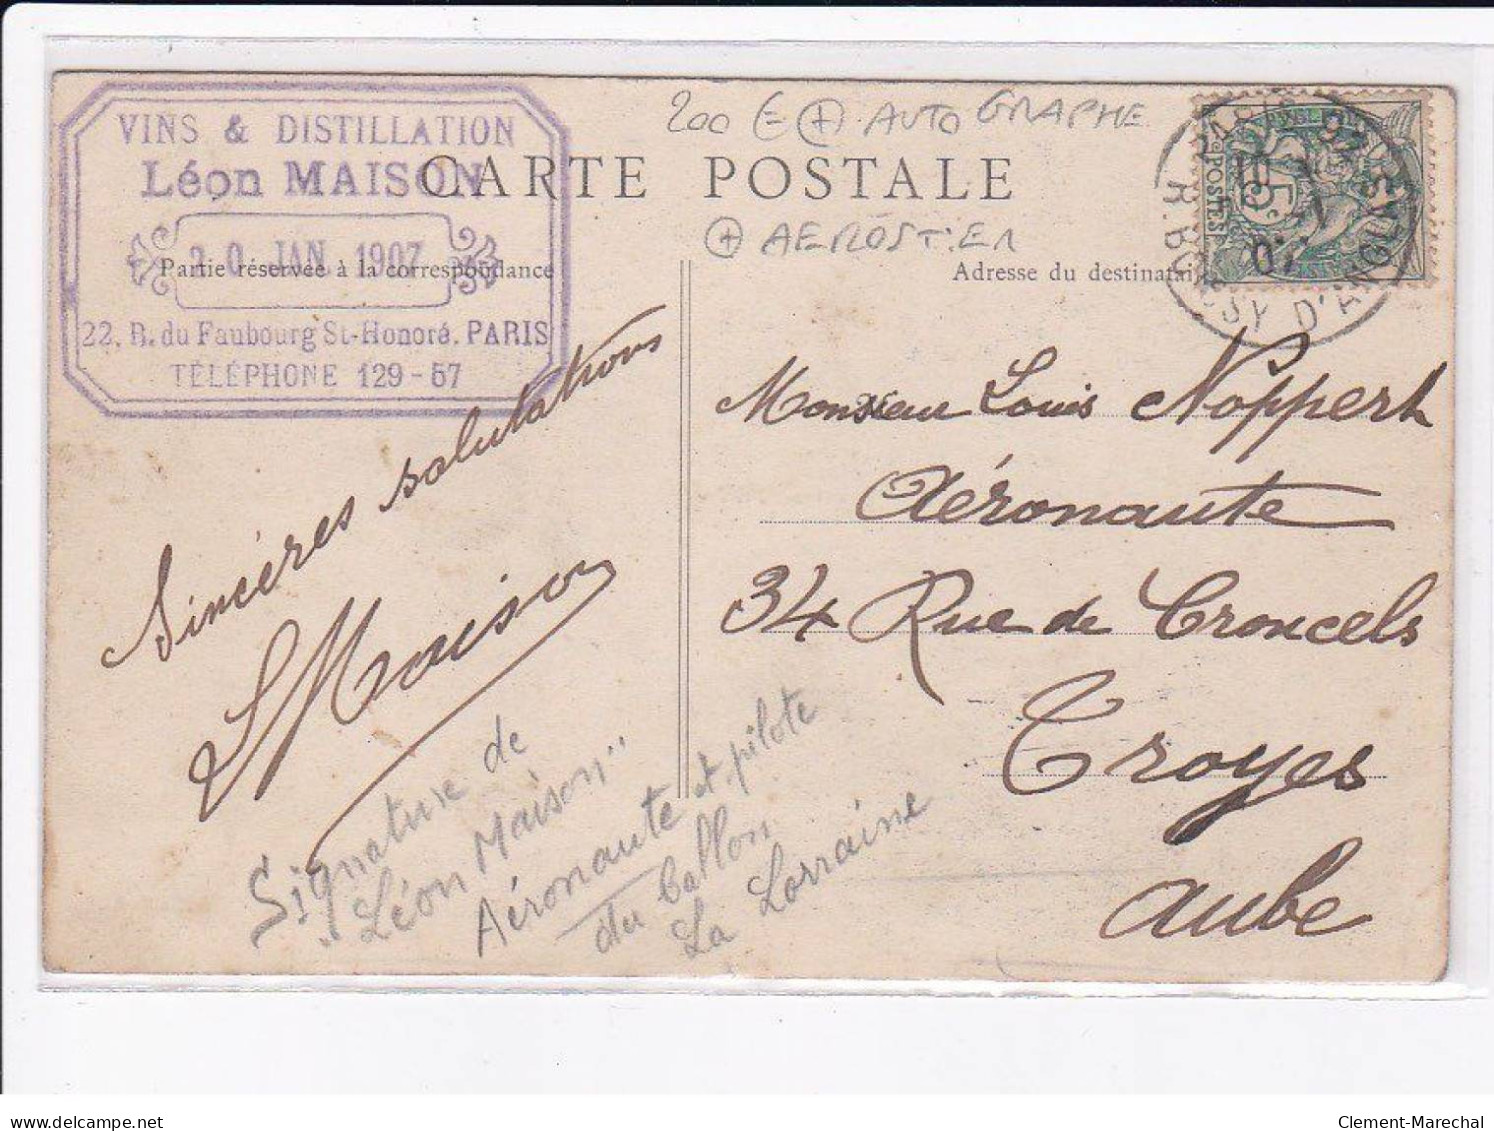 VINS & DISTILLATION
Léon MAISON
20 JAN. 1907
22, R. du Faubourg St-Honoré, PARIS
TÉLÉPHONE 129-57
200 € + AUTOGRAPHE
CARTE POSTALE
+ AEROSTIER
Partie réservée à la correspondance
Adresse du destinatai
POSTES
5c
07
R. BOISSY D'ANGLAS
Sincères salutations
L Maison
Monsieur Louis Noppert
Aéronaute
34 Rue de Croncels
Troyes
Aube
Signature de
"Léon Maison"
Aéronaute et pilote
du ballon
La Lorraine
delcampe.net
Clement-Marechal